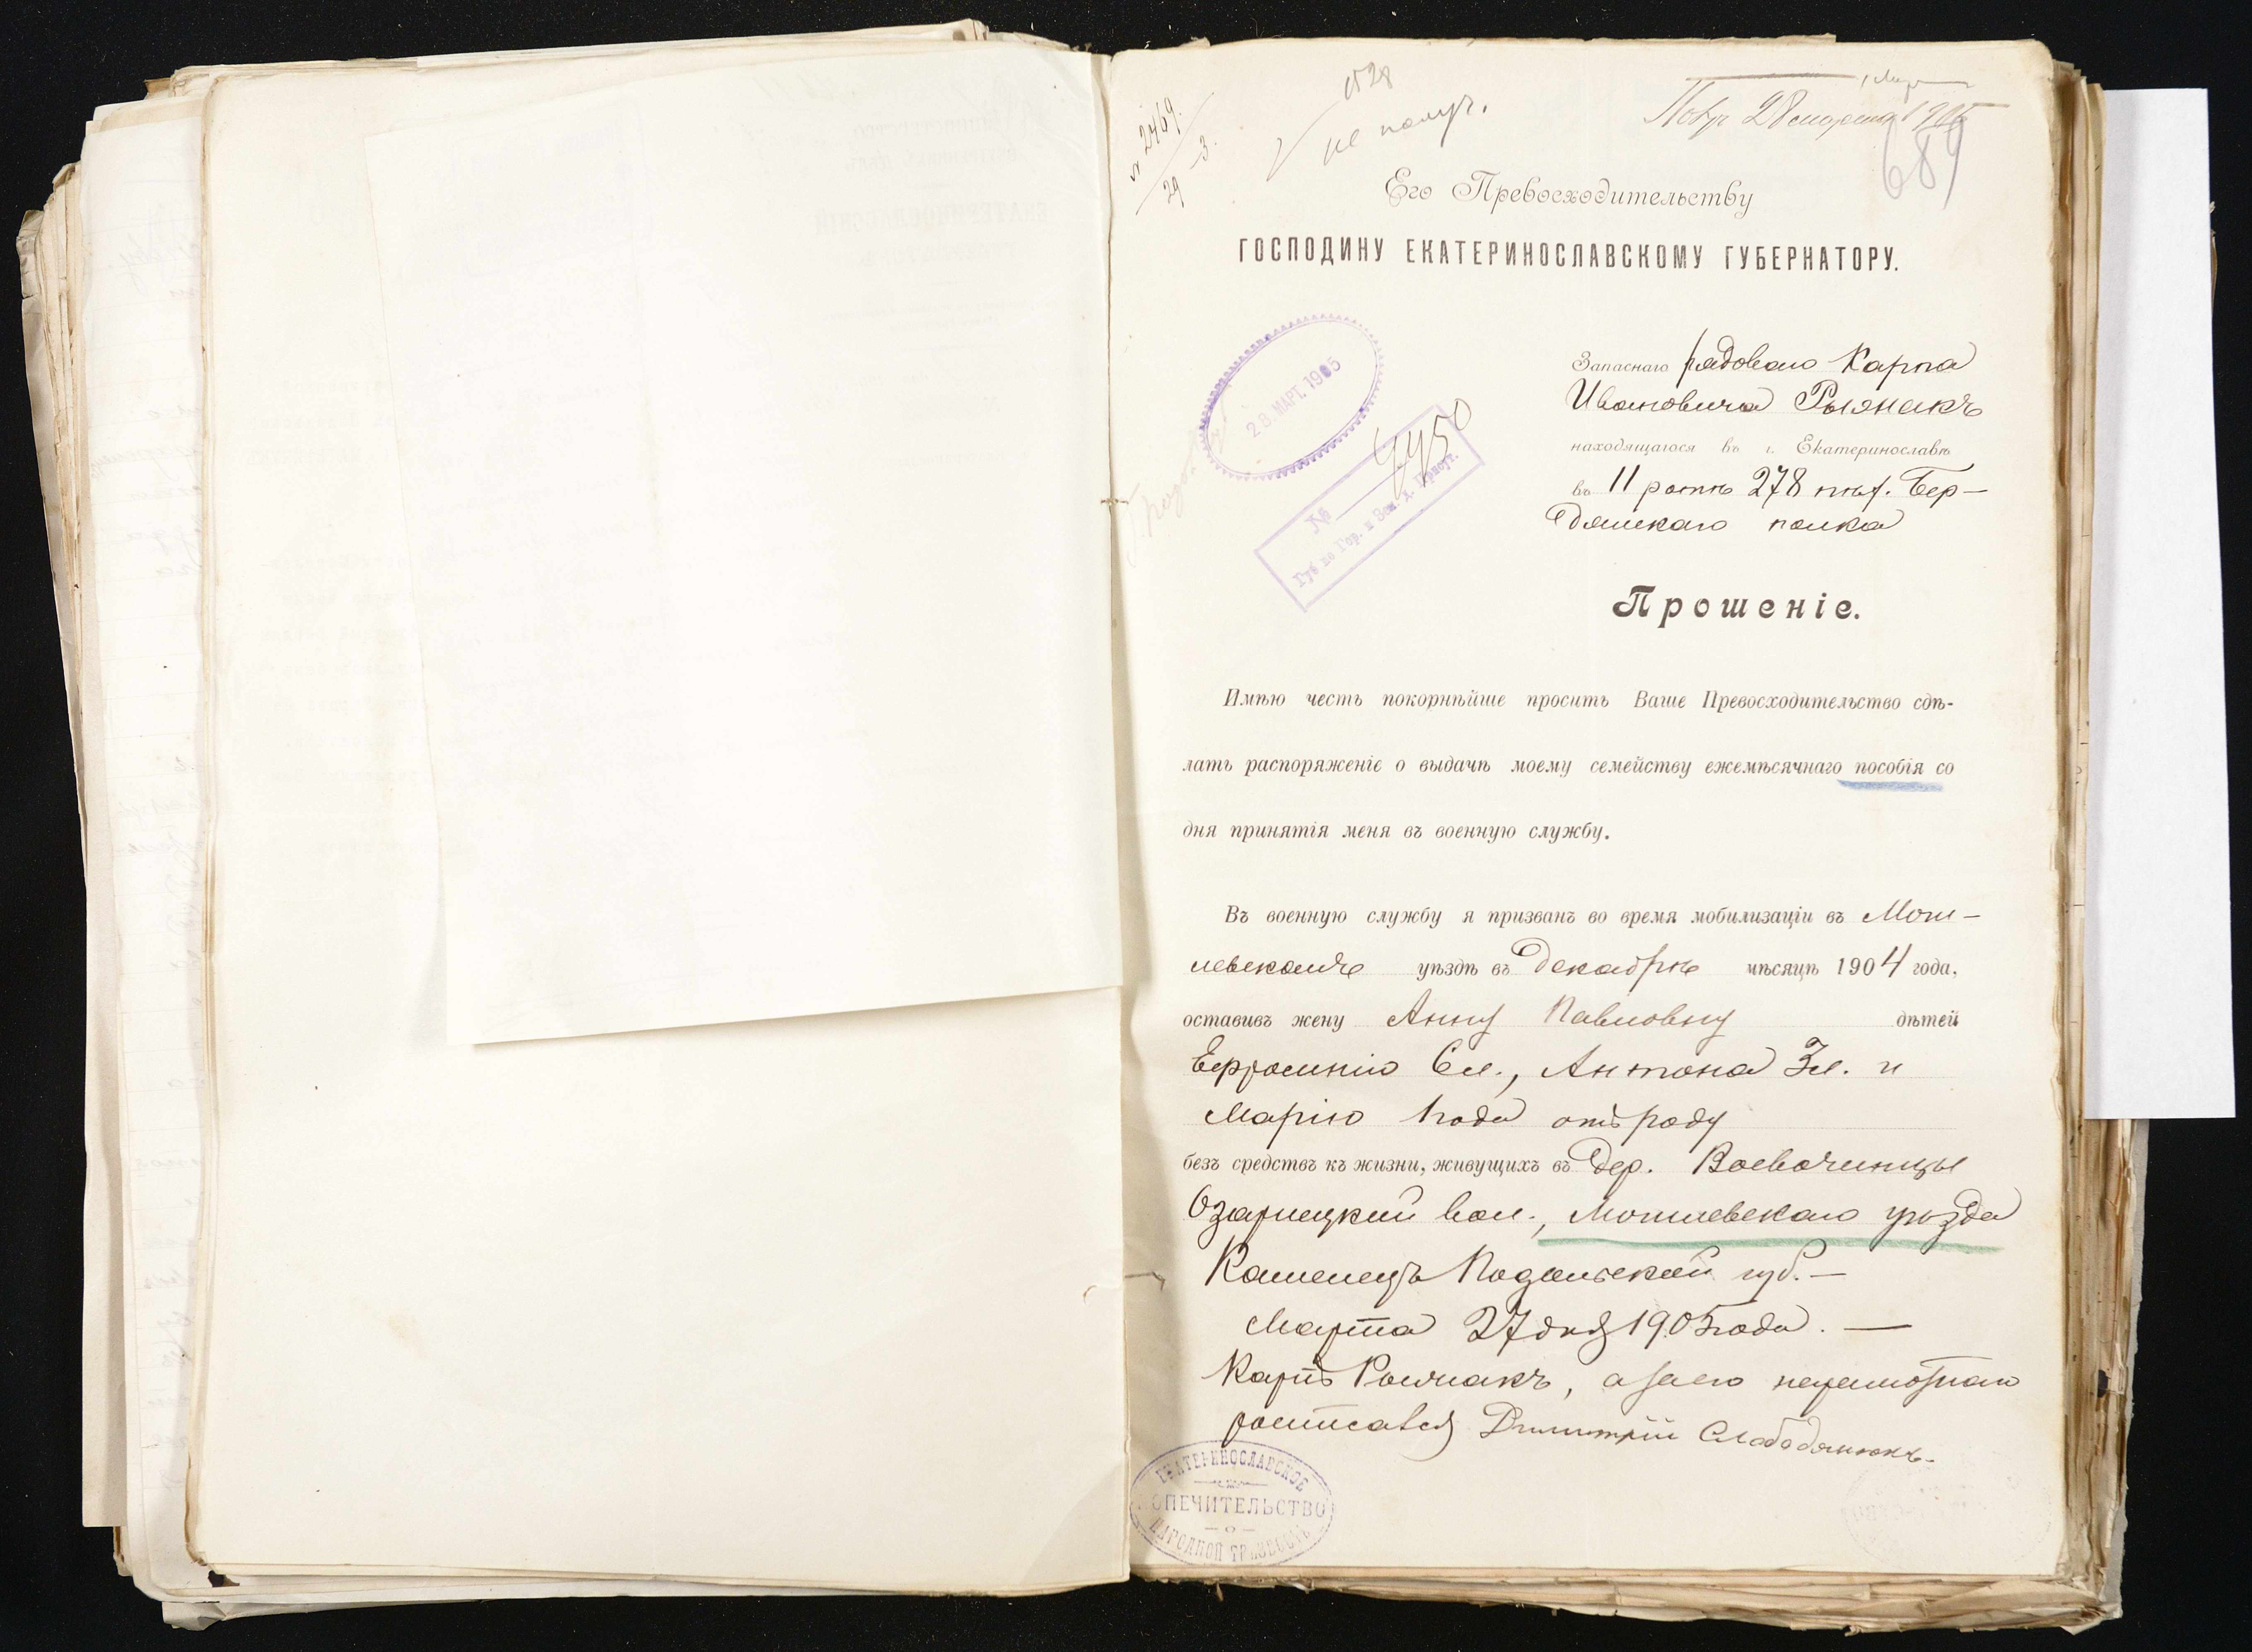 № 2469.
29 – 3.
не получ.
28 марта 1905
689
Его Превосходительству
ГОСПОДИНУ ЕКАТЕРИНОСЛАВСКОМУ ГУБЕРНАТОРУ.
28 МАРТ. 1905
№ 4450
Губ по Гор. и Зем. д. Присут.
Запаснаго рядового Карпа
Ивановича
находящагося въ г. Екатеринославѣ
въ 11 ротѣ 278 пѣх. Бер-
дянскаго полка
Прошеніе.
Имѣю честь покорнѣйше просить Ваше Превосходительство сдѣ-
лать распоряженіе о выдачѣ моему семейству ежемѣсячнаго пособія со
дня принятія меня въ военную службу.
Въ военную службу я призванъ во время мобилизаціи въ Моги-
левскомъ уѣздѣ въ Декабрѣ мѣсяцѣ 1904 года,
оставивъ жену Анну Павловну дѣтей
Ефросинію 6 л., Антона 3 л. и
Марію 1 года отъ роду
безъ средствъ къ жизни, живущихъ въ дер. Воеводчинцы
Озаринецкой вол., Могилевскаго уѣзда
Каменецъ Подольской губ. —
Марта 27 дня 1905 года. —
Карпъ, а за его неграмотнаго
росписався Дмитрій Слободянюкъ.
ЕКАТЕРИНОСЛАВСКОЕ
ПОПЕЧИТЕЛЬСТВО
— о —
НАРОДНОЙ ТРЕЗВОСТИ